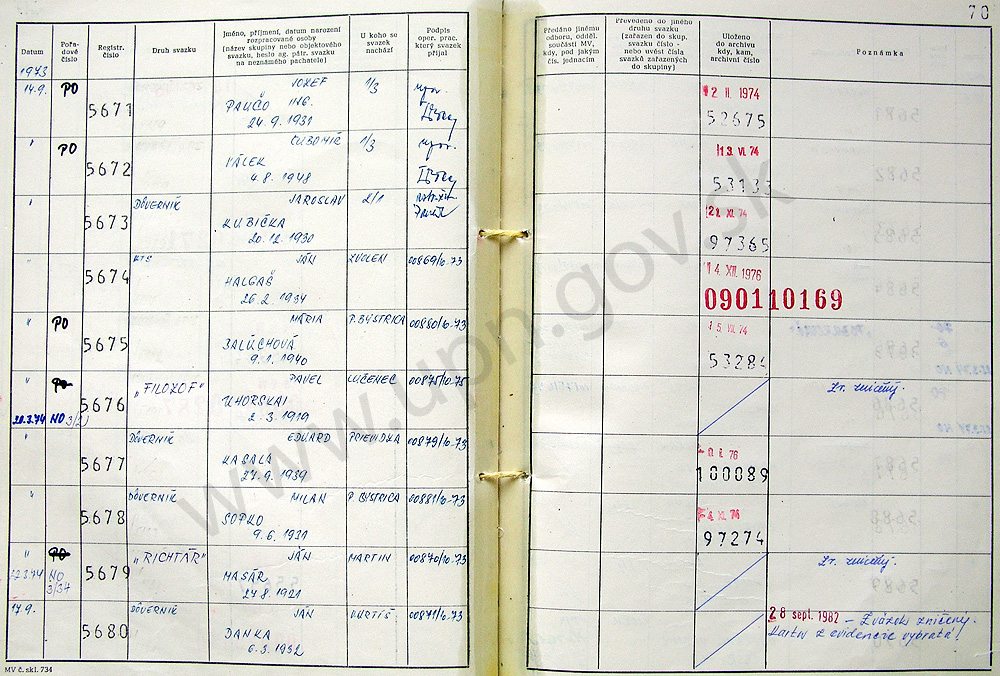 70
Datum
Pořa-
dové
číslo
Registr.
číslo
Druh svazku
Jméno, příjmení, datum narození
rozpracované osoby
(název skupiny nebo objektového
svazku, heslo ag. pátr. svazku
na neznámého pachatele)
U koho se
svazek
nachází
Podpis
oper. prac.
který svazek
přijal
Předáno jinému
odboru, odděl.
součásti MV,
kdy, pod jakým
čís. jednacím
Převedeno do jiného
druhu svazku
(zařazen do skup.
svazku číslo -
nebo uvést čísla
svazků zařazených
do skupiny)
Uloženo
do archivu
kdy, kam,
archivní číslo
Poznámka
1973
14.9. PO 5671 JOZEF 1/3
PAUČO ING.
24.9. 1931
12 II 1974
52675
" PO 5672 ĽUBOMÍR 1/3
VÁLEK
4.8. 1948
13. VI. 74
53133
" 5673 DÔVERNÍK JAROSLAV 2/1
KUBIČKA
20.12. 1930
21. XI. 74
97365
" 5674 KTS JÁN ZVOLEN 00869/10-73
HALGAŠ
26.2. 1934
14. XII. 1976
090110169
" PO 5675 MÁRIA P. BYSTRICA 00880/10-73
BALÚCHOVÁ
9.1. 1940
53284
" PO 5676 "FILOZOF" PAVEL LUČENEC 00875/10-75
UHORSKAI
2.3. 1919
20.3.74 NO 3/2
Zv. zničený.
" 5677 DÔVERNÍK EDUARD PRIEVIDZA 00879/10-73
KASALA
27.9. 1939
100089
" 5678 DÔVERNÍK MILAN P. BYSTRICA 00881/10-73
SOPKO
9.6. 1931
4. XI. 74
97274
" PO 5679 "RICHTÁR" JÁN MARTIN 00870/10-73
MASÁR
27.8. 1921
NO
3/34
Zv. zničený.
17.9. 5680 DÔVERNÍK JÁN 00871/10-73
DANKA
6.3. 1932
28 sept. 1982 – Zväzok zničený.
Kartu z evidencie vybratá!
MV č. skl. 734
www.upn.gov.sk